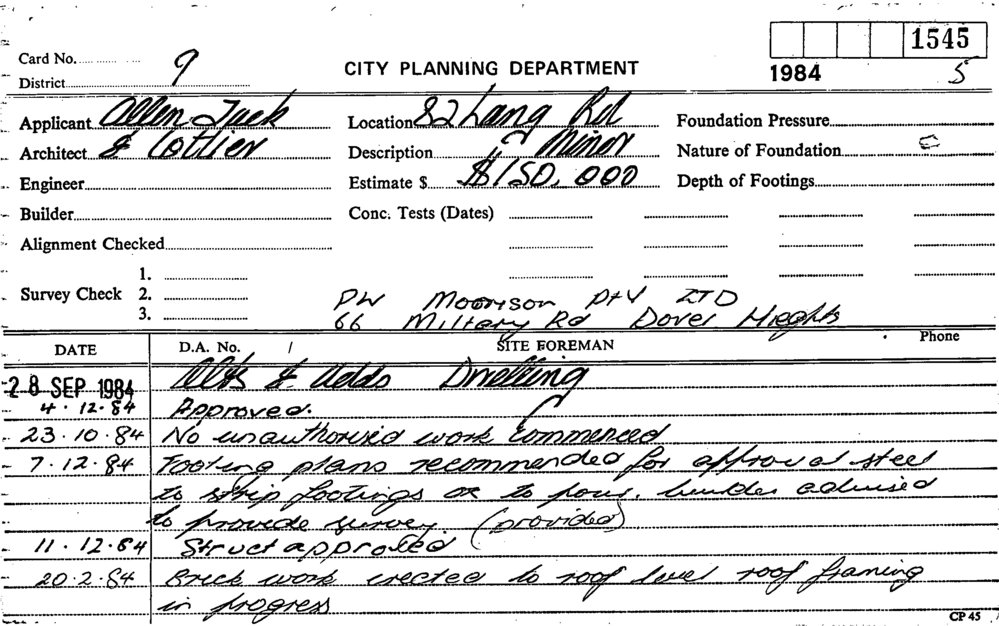 1545
Card No. 9
CITY PLANNING DEPARTMENT
1984 5
District
Applicant Allen Jack Location 82 Lang Rd Foundation Pressure
Architect & Cottier Description Minor Nature of Foundation
Engineer Estimate $ $150,000 Depth of Footings
Builder Conc. Tests (Dates)
Alignment Checked
1.
Survey Check 2.
3.
PW Morrison Pty LTD
66 Military Rd Dover Hieghts
DATE D.A. No. / SITE FOREMAN Phone
28 SEP 1984 Alts & Adds Dwelling
4.12.84 Approved.
23.10.84 No unauthorised work commenced
7.12.84 Footing plans recommended for approval steel
to strip footings ok to pour. builder advised
to provide survey (provided)
11.12.84 Struct approved
20.2.84 Brick work erected to roof level roof framing
in progress
CP 45